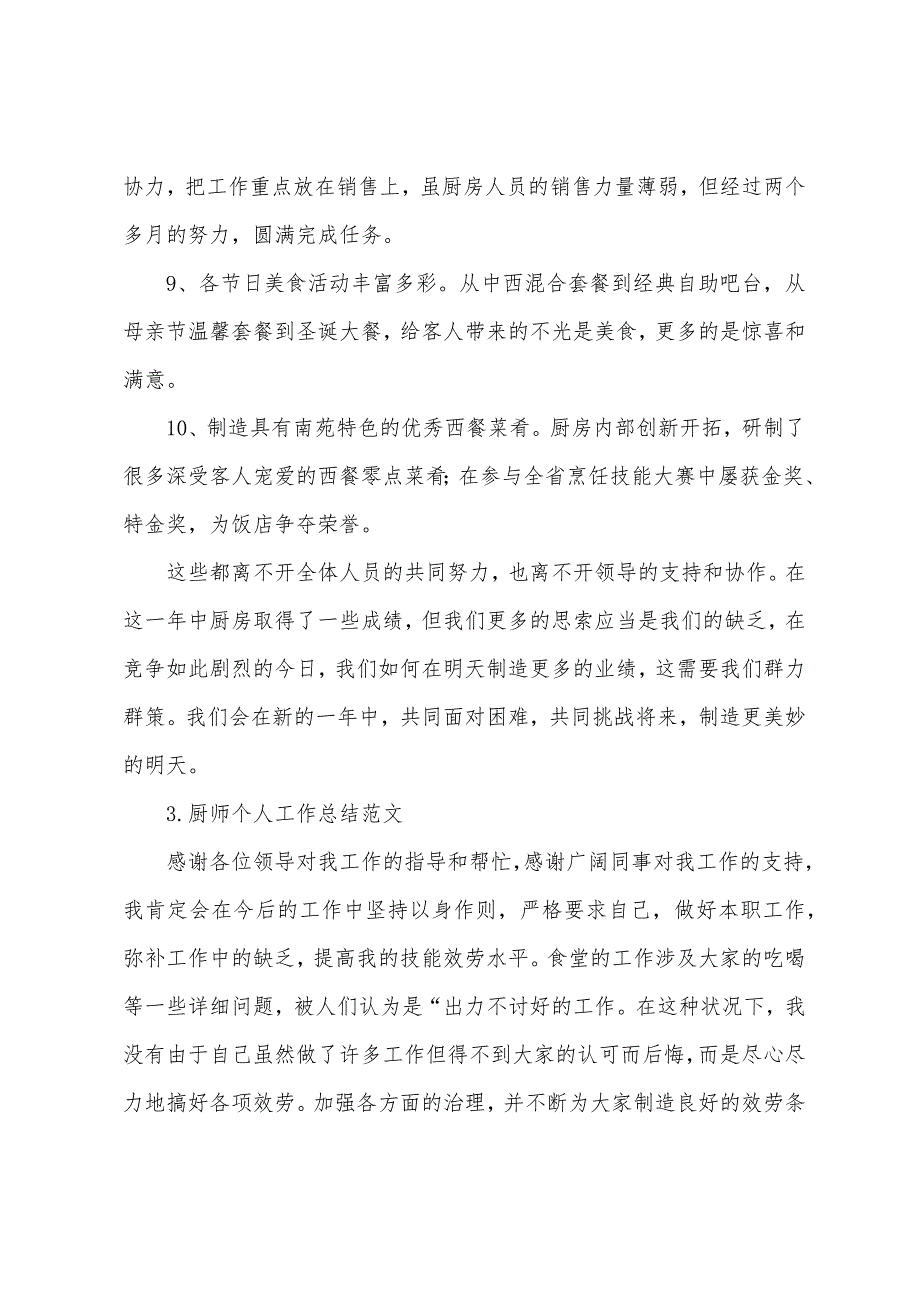 协力，把工作重点放在销售上，虽厨房人员的销售力量薄弱，但经过两个
多月的努力，圆满完成任务。
9、各节日美食活动丰富多彩。从中西混合套餐到经典自助吧台，从
母亲节温馨套餐到圣诞大餐，给客人带来的不光是美食，更多的是惊喜和
满意。
10、制造具有南苑特色的优秀西餐菜肴。厨房内部创新开拓，研制了
很多深受客人宠爱的西餐零点菜肴；在参与全省烹饪技能大赛中屡获金奖、
特金奖，为饭店争夺荣誉。
这些都离不开全体人员的共同努力，也离不开领导的支持和协作。在
这一年中厨房取得了一些成绩，但我们更多的思索应当是我们的缺乏，在
竞争如此剧烈的今日，我们如何在明天制造更多的业绩，这需要我们群力
群策。我们会在新的一年中，共同面对困难，共同挑战将来，制造更美妙
的明天。
3.厨师个人工作总结范文
感谢各位领导对我工作的指导和帮忙，感谢广阔同事对我工作的支持，
我肯定会在今后的工作中坚持以身作则，严格要求自己，做好本职工作，
弥补工作中的缺乏，提高我的技能效劳水平。食堂的工作涉及大家的吃喝
等一些详细问题，被人们认为是“出力不讨好的工作。在这种状况下，我
没有由于自己虽然做了许多工作但得不到大家的认可而后悔，而是尽心尽
力地搞好各项效劳。加强各方面的治理，并不断为大家制造良好的效劳条